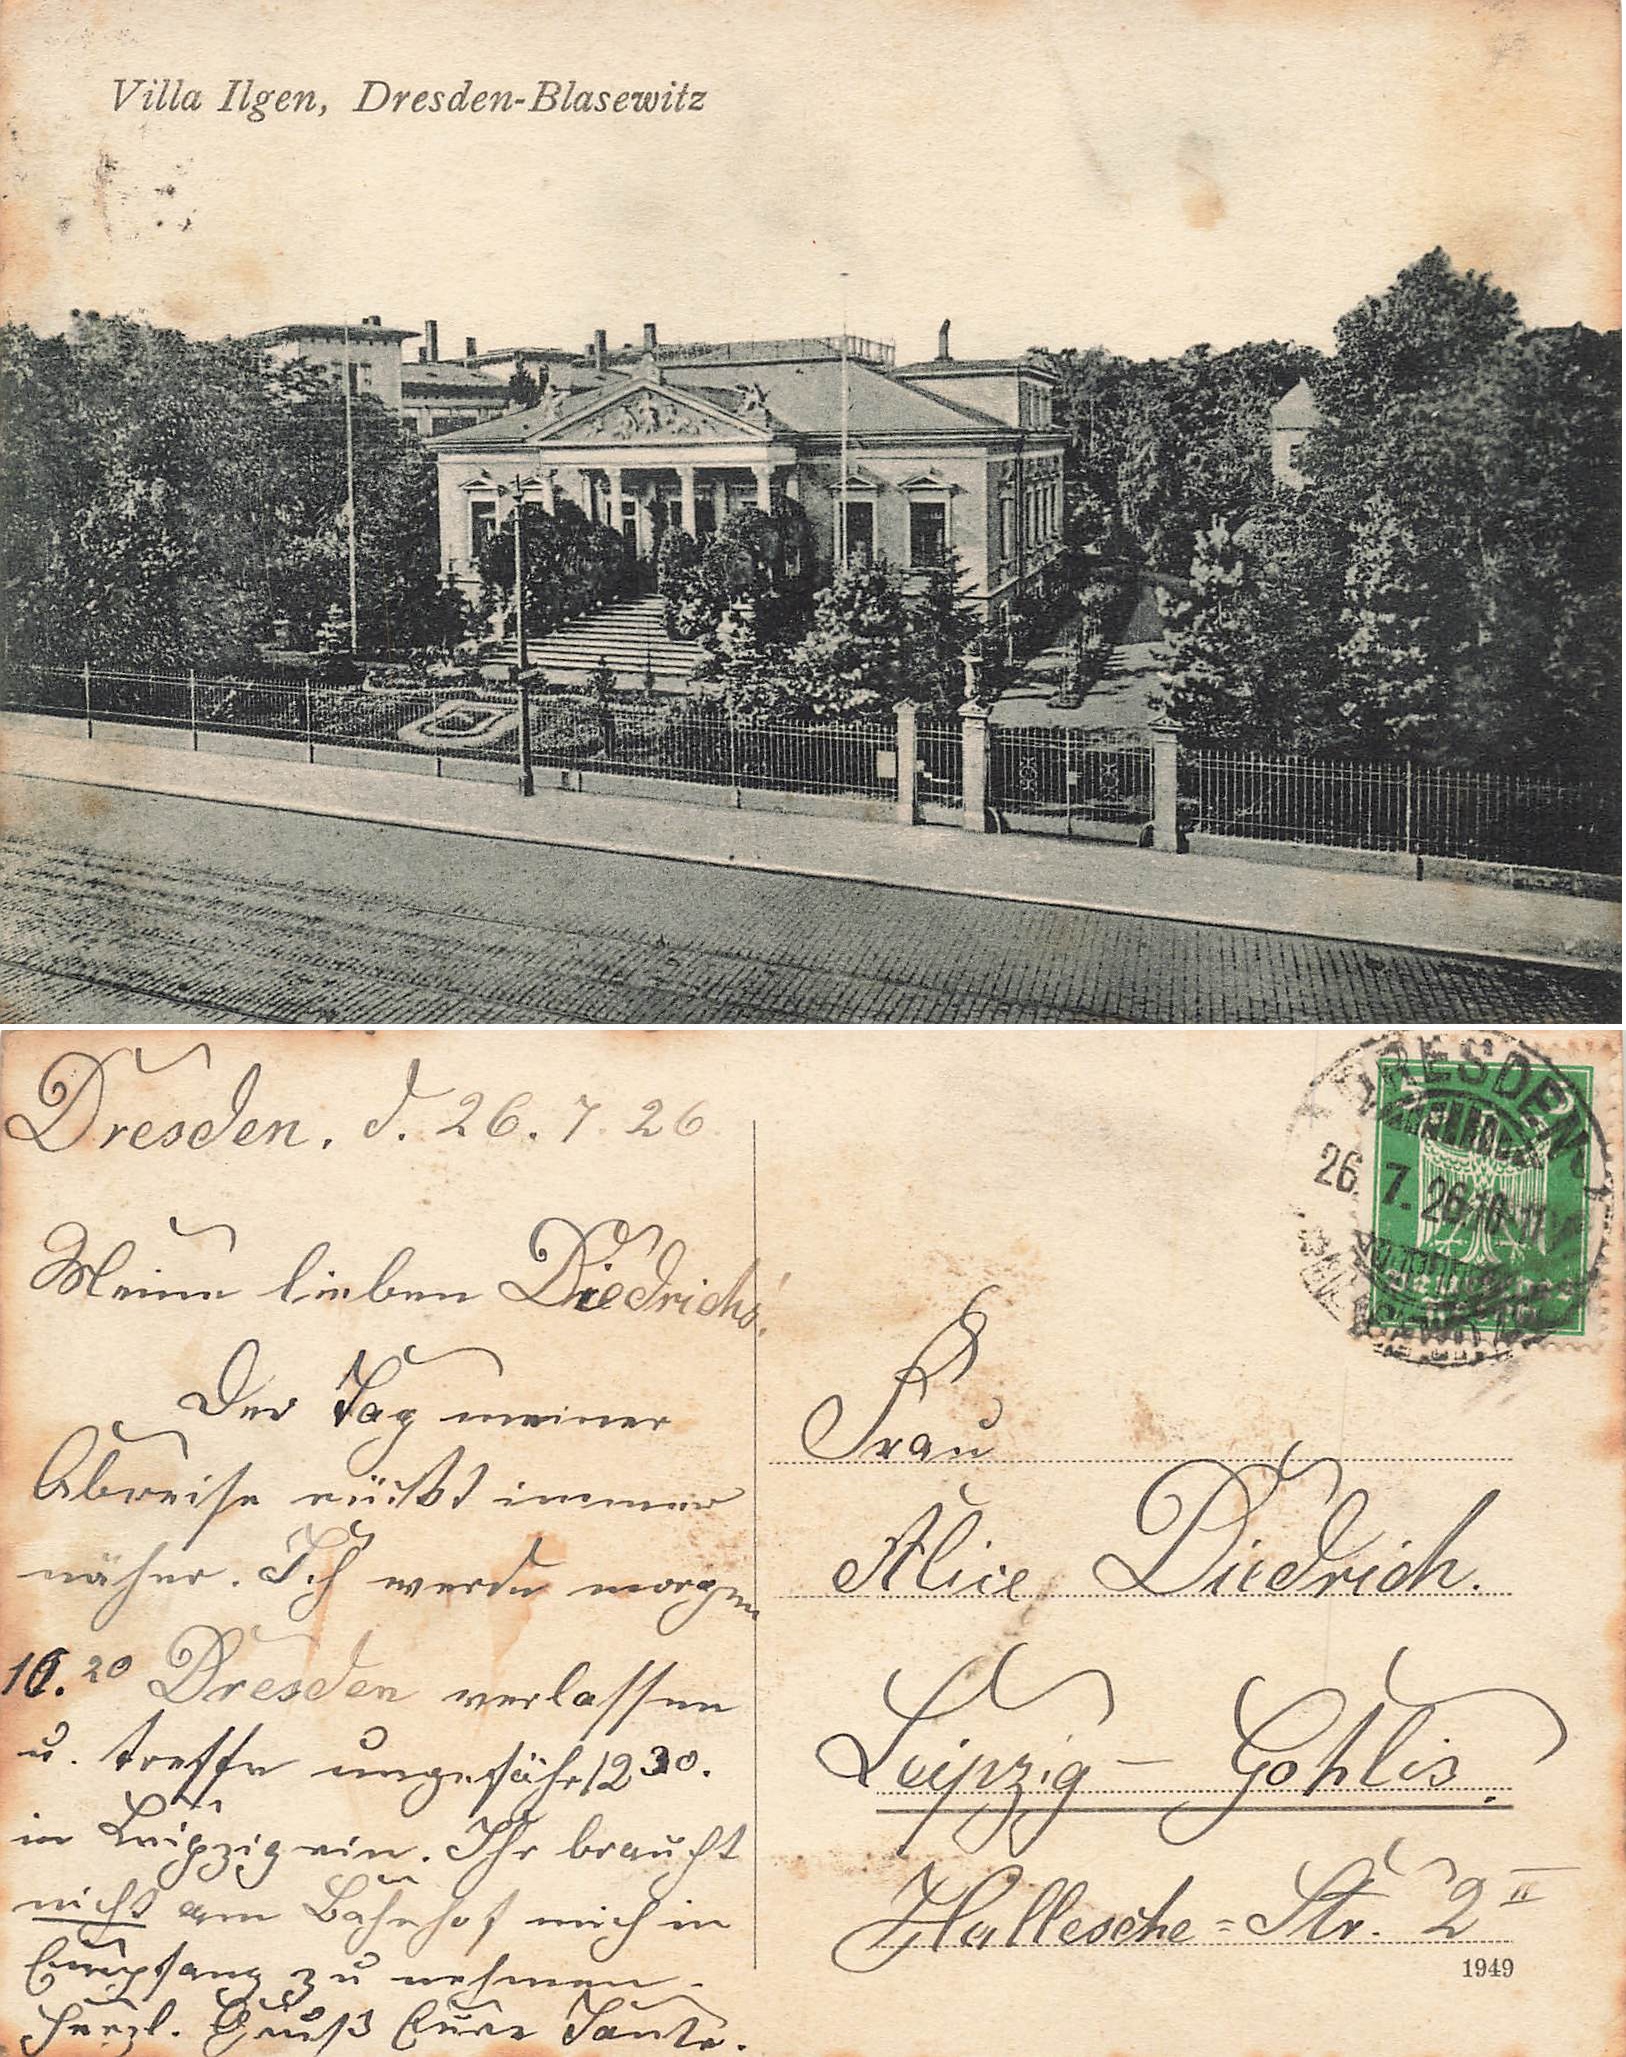 Villa Ilgen, Dresden-Blasewitz
Dresden, d. 26. 7. 26
Meine lieben Diedrichs!
Der Tag meiner
Abreise rückt immer
näher. Ich werde morgen
10.20 Dresden verlassen
u. treffe ungefähr 12 30.
in Leipzig ein. Ihr braucht
nicht am Bahnhof mich in
Empfang zu nehmen.
Herzl. Gruß Eure Tante.
DRESDEN
26. 7. 26
Frau
Alice Diedrich.
Leipzig - Gohlis.
Hallesche = Str. 2 II
1949